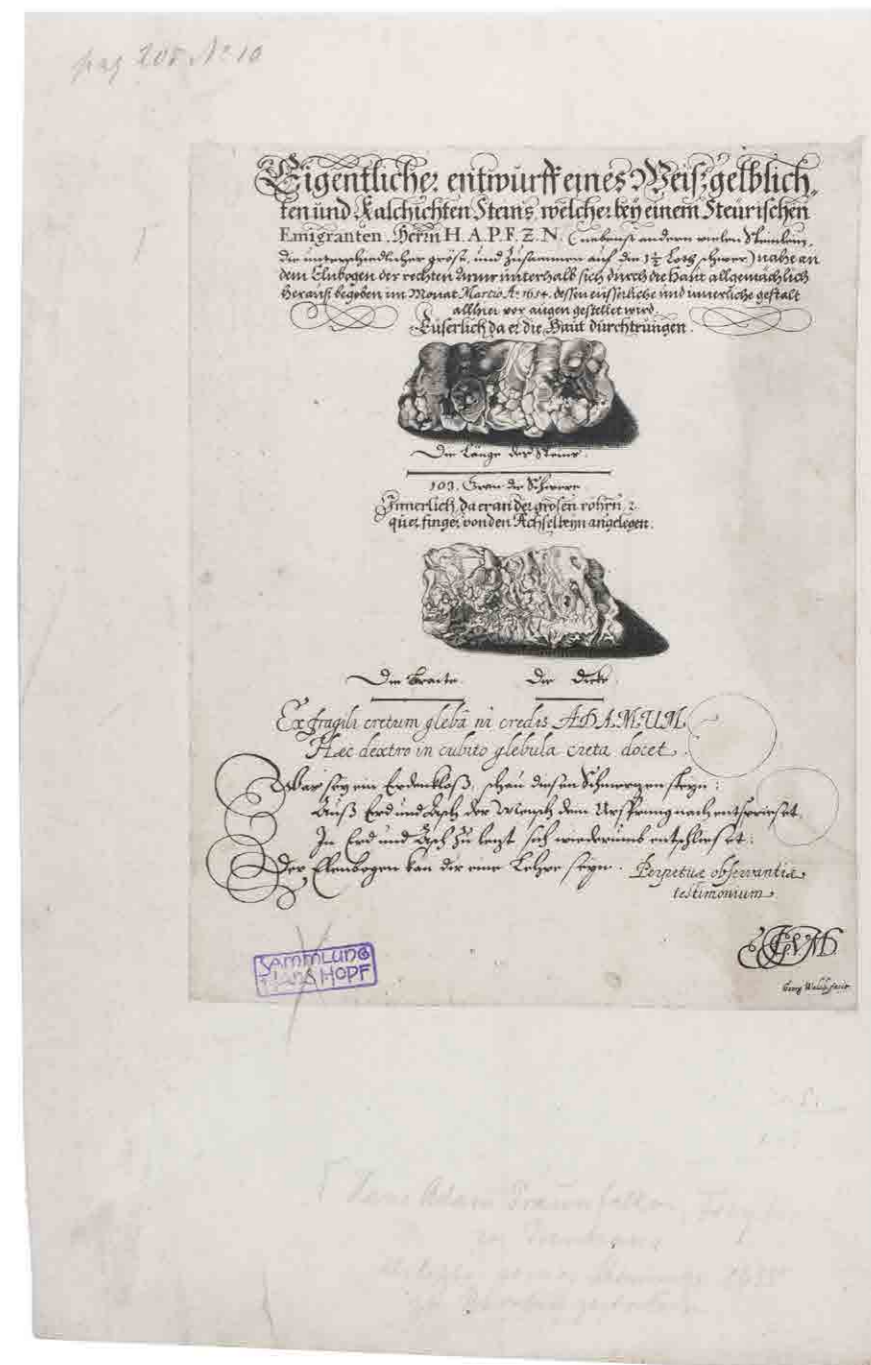 pag 208 No 10
Eigentlicher entwurff eines Weiß, gelblich,
ten und Kalchichten Steins, welcher bey einem Steürischen
Emigranten. Herrn H. A. P. F. Z. N. (nebenst andern vielen Steinlein,
die unterschiedlicher größe, und Zusammen auf die 1½ Loth schwer) nahe an
dem Elnbogen der rechten Armr unterhalb sich durch die haut allgemächlich
herauß begeben im Monat Martio Ao. 1654. dessen eusserliche und innerliche gestalt
allhier vor augen gestellet wird.
Euserlich da er die Haut dürchtrüngen.
Die Länge der Steins.
103. Gran die Schwere.
Innerlich, da er an der grosen rohrn, 2.
quer finger von den Achselbeyn angelegen.
Die Braite. Die Dicke.
Ex fragili cretum glebâ ni credis ADAMUM
Hæc dextro in cubito glebula creta docet.
War sey ein Erdenkloß, schau diesen Schmerzen steyn:
Auß Erd und Asch der Mensch dem Ursprung nach entsprieset,
In Erd und Asch zu lezt sich wiederumb entschlieset:
Der Elenbogen kan dir eine Lehre seyn. Perpetuæ observantiæ
testimonium.
Georg Walch fecit
SAMMLUNG
HANS HOPF
Hans Adam Praunfalk